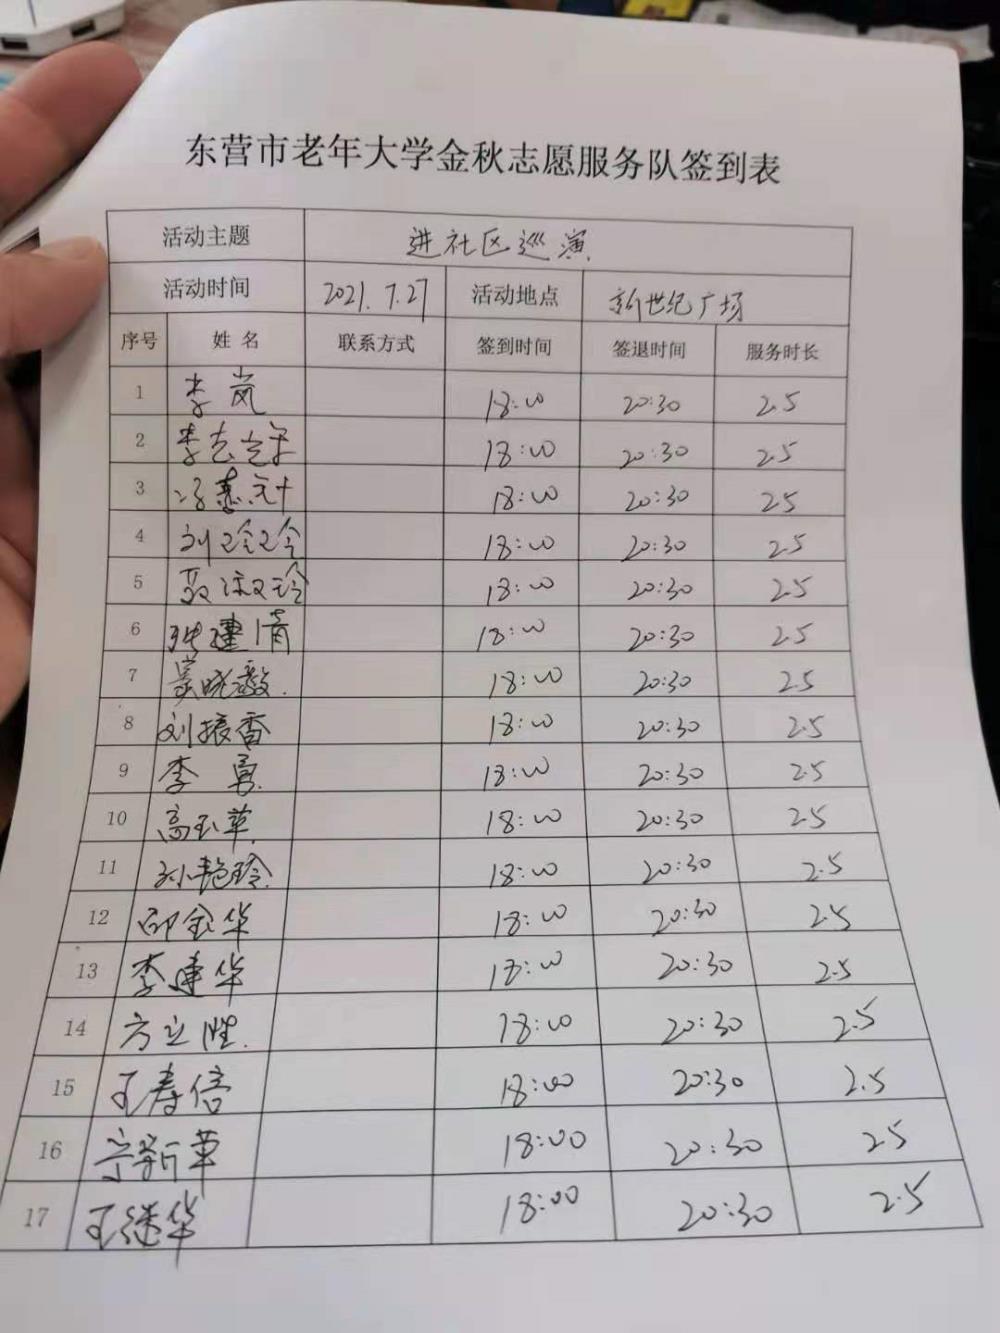 东营市老年大学金秋志愿服务队签到表
活动主题 进社区巡演
活动时间 2021.7.27 活动地点 新世纪广场
序号 姓名 联系方式 签到时间 签退时间 服务时长
1 李岚 18:00 20:30 2.5
2 李志军 18:00 20:30 2.5
3 冯惠 18:00 20:30 2.5
4 刘玲玲 18:00 20:30 2.5
5 聂淑玲 18:00 20:30 2.5
6 张建清 18:00 20:30 2.5
7 晓毅 18:00 20:30 2.5
8 刘振香 18:00 20:30 2.5
9 李勇 18:00 20:30 2.5
10 高玉萃 18:00 20:30 2.5
11 孙艳玲 18:00 20:30 2.5
12 邱金华 18:00 20:30 2.5
13 李建华 18:00 20:30 2.5
14 方立胜 18:00 20:30 2.5
15 王寿倍 18:00 20:30 2.5
16 新革 18:00 20:30 2.5
17 王继华 18:00 20:30 2.5